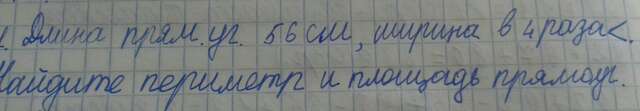 1. Длина прям.уг. 56 см, ширина в 4 раза <.
Найдите периметр и площадь прямоуг.